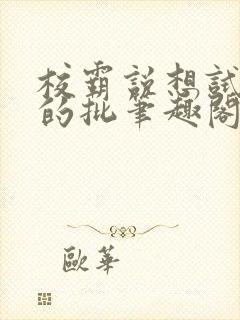 校霸說想試
的批筆趣閣
歐華